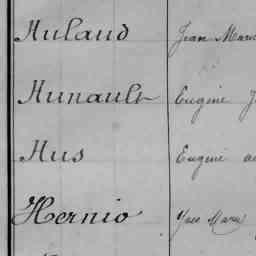 Hulaud Jean Marie
Hunault Eugène
Hus Eugène
Hernio Yves Marie